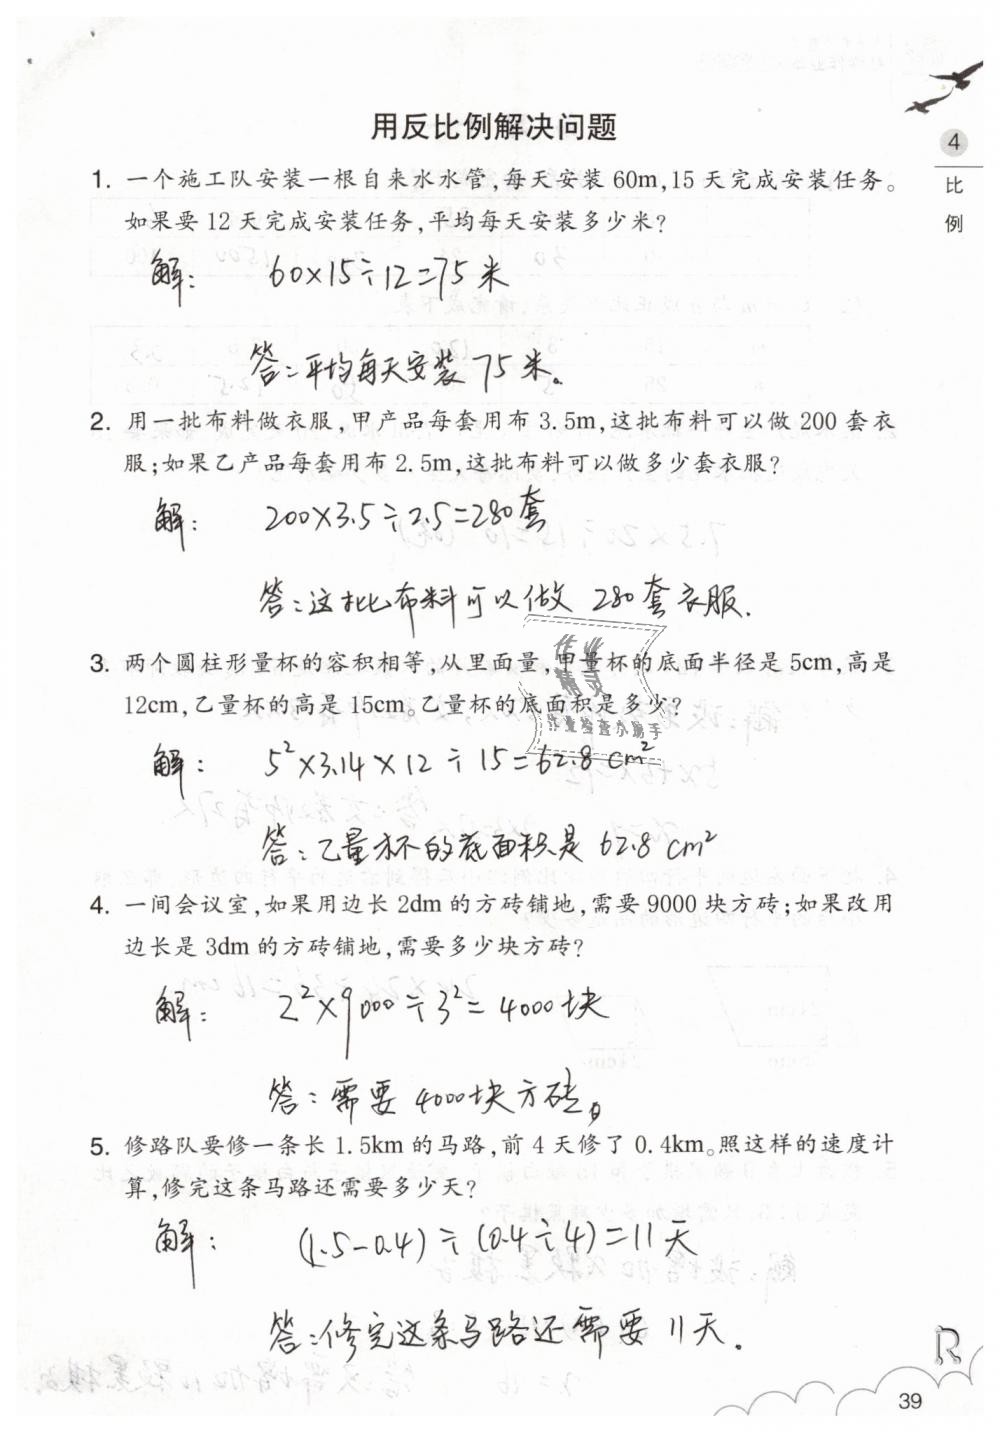 用反比例解决问题
4
比
例
1. 一个施工队安装一根自来水水管,每天安装 60m,15 天完成安装任务。
如果要 12 天完成安装任务,平均每天安装多少米?
解: 60×15÷12=75 米
答:平均每天安装 75 米。
2. 用一批布料做衣服,甲产品每套用布 3.5m,这批布料可以做 200 套衣
服;如果乙产品每套用布 2.5m,这批布料可以做多少套衣服?
解: 200×3.5÷2.5=280套
答:这批布料可以做 280套衣服.
3. 两个圆柱形量杯的容积相等,从里面量,甲量杯的底面半径是 5cm,高是
12cm,乙量杯的高是 15cm。乙量杯的底面积是多少?
作业
精灵
作业检查小助手
解: 5²×3.14×12÷15=62.8 cm²
答:乙量杯的底面积是 62.8 cm²
4. 一间会议室,如果用边长 2dm 的方砖铺地,需要 9000 块方砖;如果改用
边长是 3dm 的方砖铺地,需要多少块方砖?
解: 2²×9000÷3²=4000块
答:需要 4000块方砖。
5. 修路队要修一条长 1.5km 的马路,前 4 天修了 0.4km。照这样的速度计
算,修完这条马路还需要多少天?
解: (1.5-0.4)÷(0.4÷4)=11天
答:修完这条马路还需要 11天.
R
39